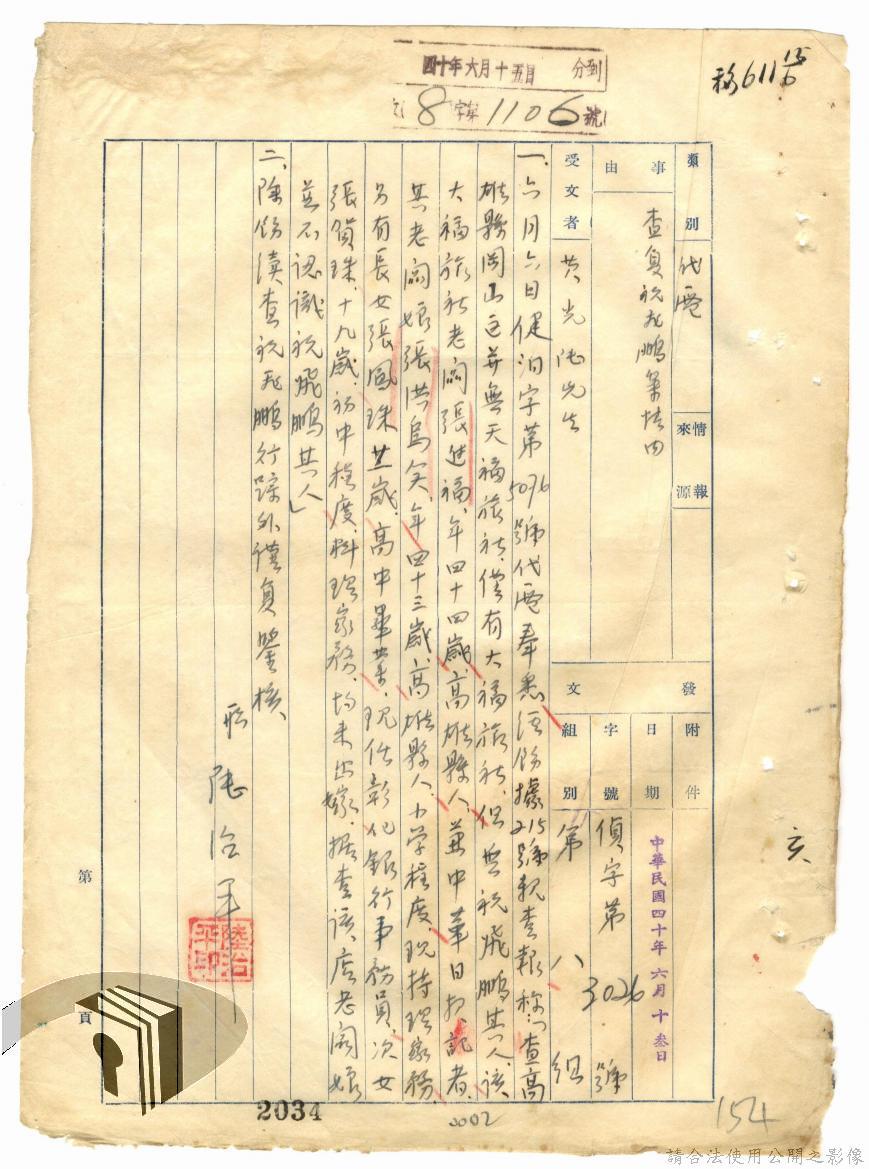 四十年六月十五日 分到
8字第1106號
移611 15/6
類別 代電
事由 查复祝飛鵬案情由
情報來源
受文者 黃光陸先生
發文
附件
日期 中華民國四十年六月十叁日
字號 偵字第3026號
組別 第八組
一、六月六日健汨字第5096號代電奉悉經飭據215號親查報称:「查高
雄縣岡山區并無天福旅社,僅有大福旅社,但無祝飛鵬其人,該
大福旅社老闆張进福,年四十四歲,高雄縣人,兼中華日報記者,
其老闆娘張洪烏笑,年四十三歲,高雄縣人,小学程度,現持理家務,
另有長女張鳳珠廿歲,高中畢業,現任彰化銀行事務員,次女
張貿珠,十九歲,初中程度,料理家務,均未出嫁,据查該店老闆娘
並不認識祝飛鵬其人」
二、除飭續查祝飛鵬行踪外謹复鑒核、
職 陸治平
陸治平印
第 頁
亥
2034
3002
154
請合法使用公開之影像